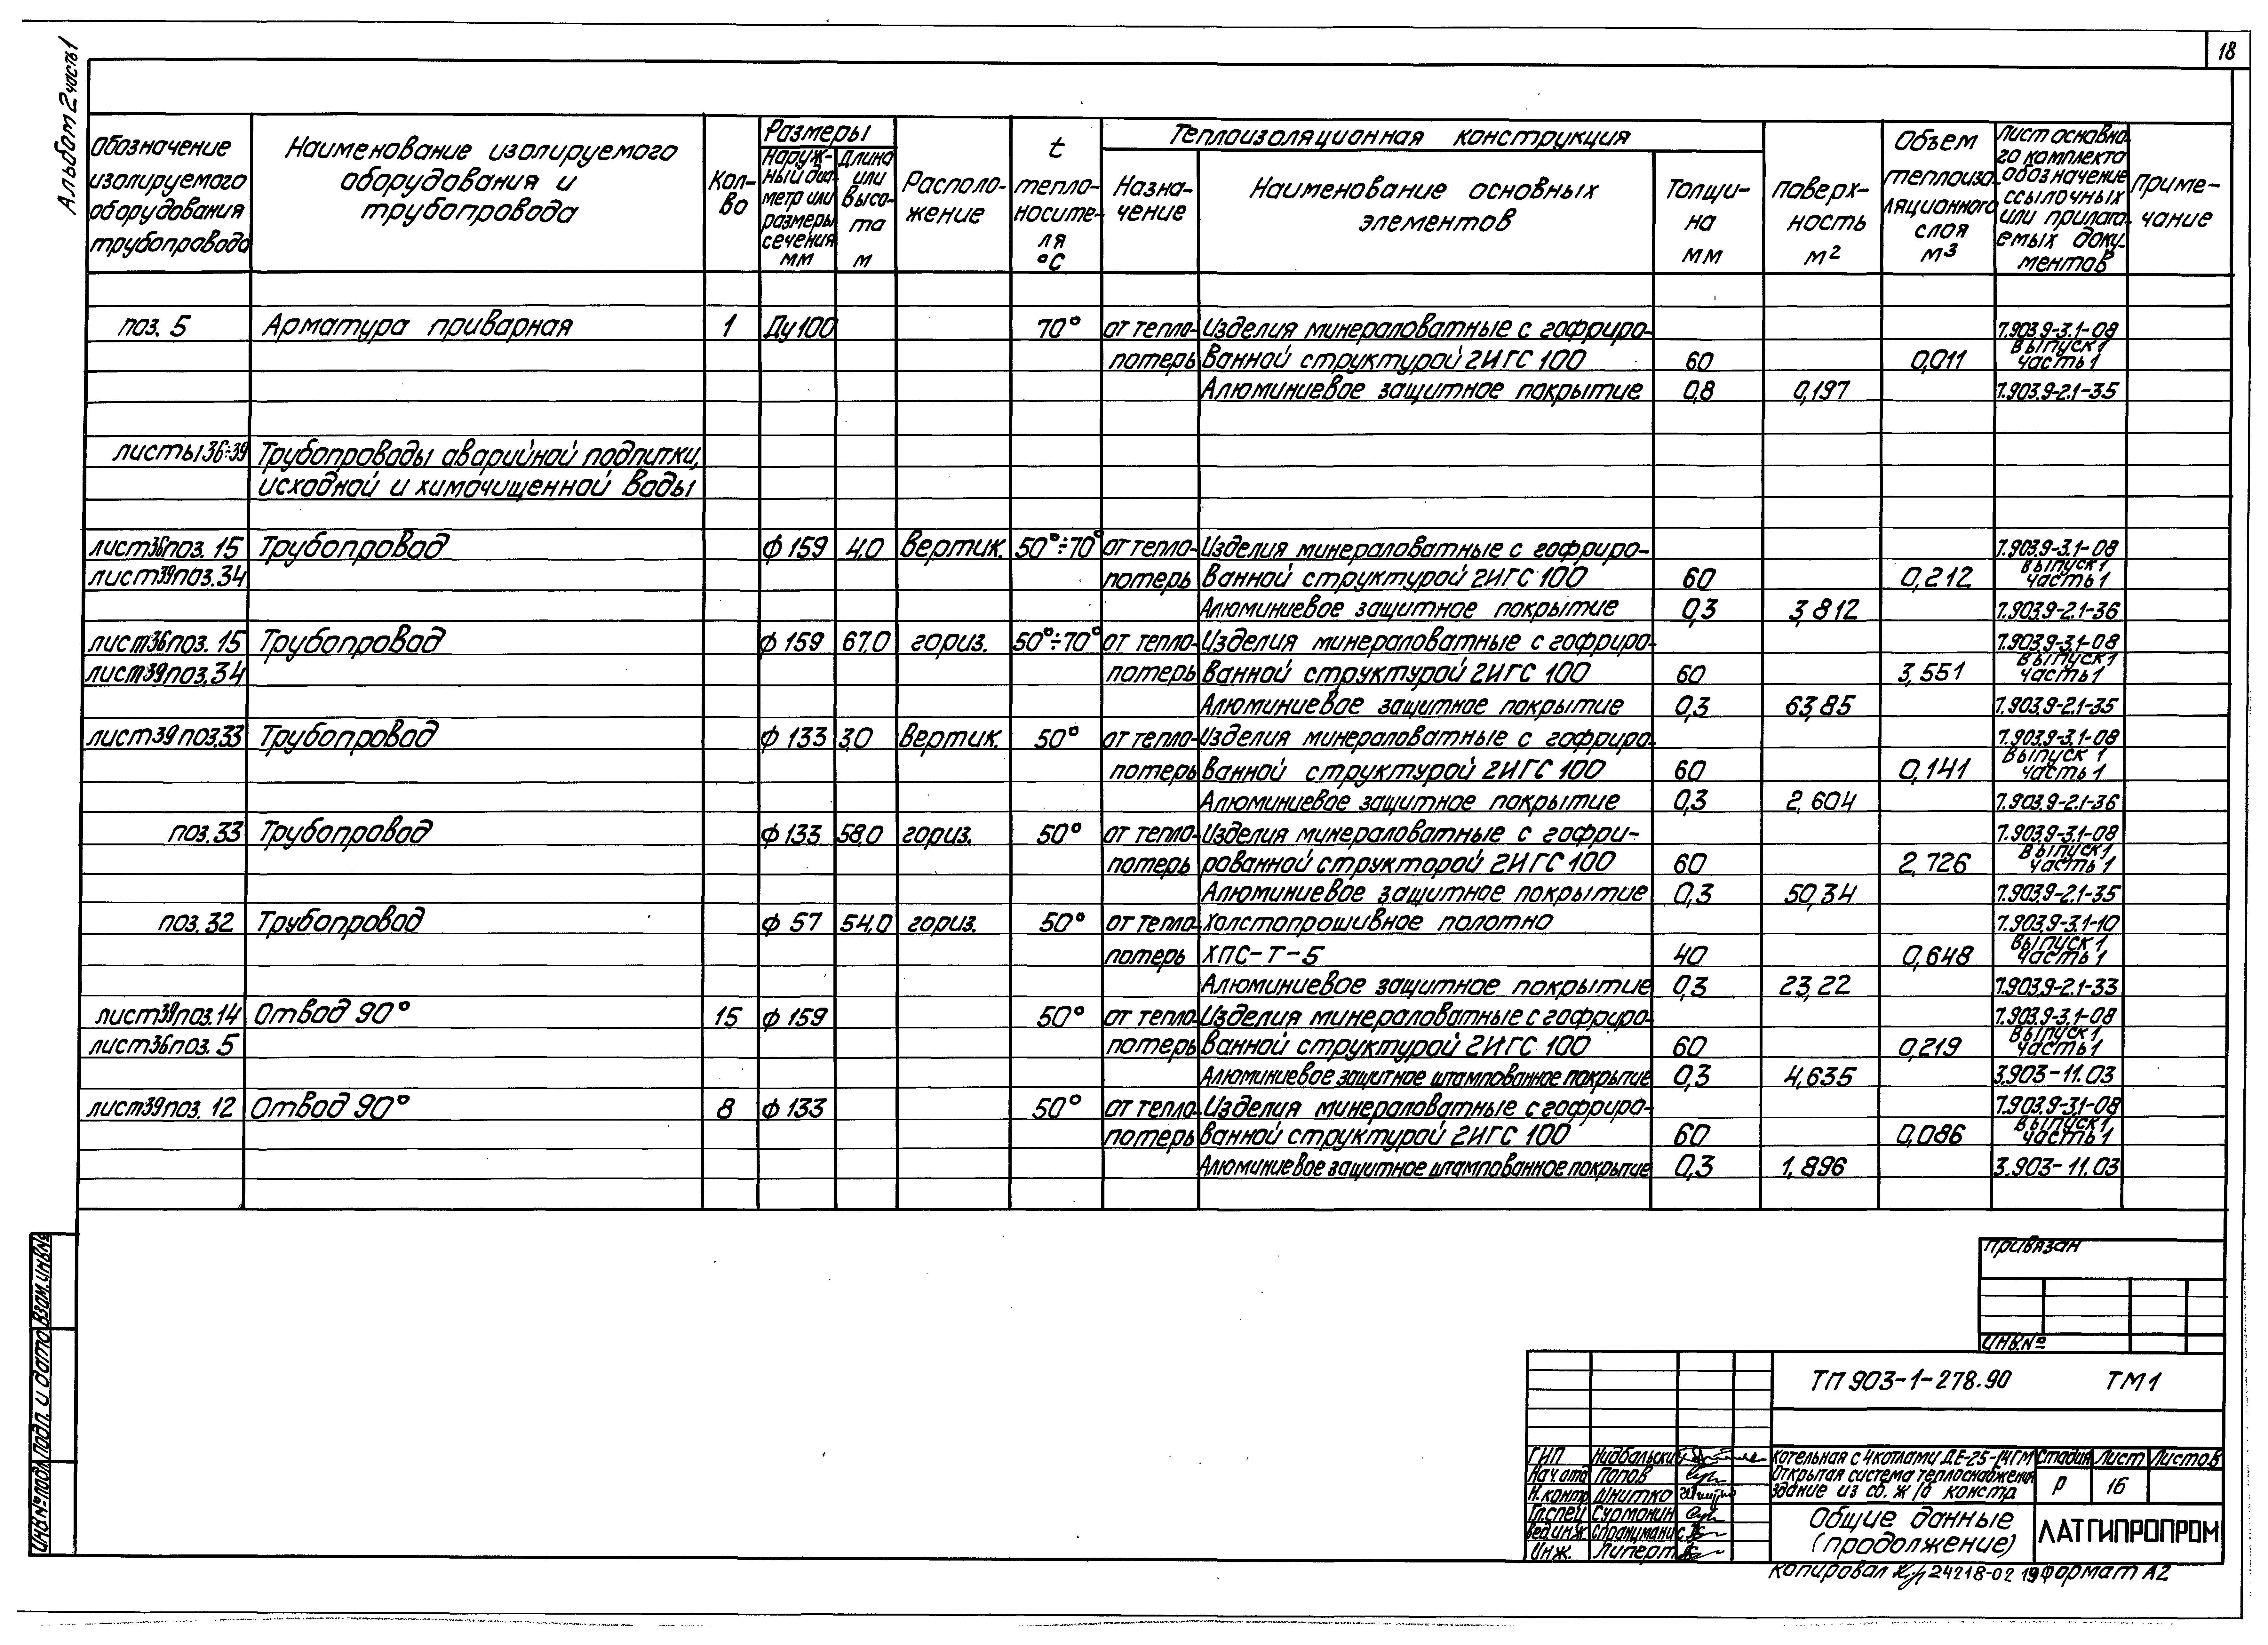 18
Альбом 2 часть 1
Обозначение изолируемого оборудования трубопровода
Наименование изолируемого оборудования и трубопровода
Кол-во
Размеры
Наруж-ный диа-метр или размеры сечения мм
Длина или высо-та м
Располо-жение
t тепло-носите-ля °C
Теплоизоляционная конструкция
Назна-чение
Наименование основных элементов
Толщи-на мм
Поверх-ность м2
Объем теплоизо-ляционного слоя м3
Лист основно-го комплекта обозначение ссылочных или прилага-емых доку-ментов
Приме-чание
поз. 5 Арматура приварная 1 Ду 100 70° от тепло- Изделия минераловатные с гофриро- 7.903.9-3.1-08
потерь ванной структурой 2ИГС 100 60 0,011 выпуск 1 часть 1
Алюминиевое защитное покрытие 0,8 0,197 7.903.9-2.1-35
листы 36÷39 Трубопроводы аварийной подпитки,
исходной и химочищенной воды
лист 36 поз. 15 Трубопровод ф 159 4,0 вертик. 50°÷70° от тепло- Изделия минераловатные с гофриро- 7.903.9-3.1-08
лист 39 поз. 34 потерь ванной структурой 2ИГС 100 60 0,212 выпуск 1 часть 1
Алюминиевое защитное покрытие 0,3 3,812 7.903.9-2.1-36
лист 36 поз. 15 Трубопровод ф 159 67,0 гориз. 50°÷70° от тепло- Изделия минераловатные с гофриро- 7.903.9-3.1-08
лист 39 поз. 34 потерь ванной структурой 2ИГС 100 60 3,551 выпуск 1 часть 1
Алюминиевое защитное покрытие 0,3 63,85 7.903.9-2.1-35
лист 39 поз. 33 Трубопровод ф 133 3,0 вертик. 50° от тепло- Изделия минераловатные с гофриро- 7.903.9-3.1-08
потерь ванной структурой 2ИГС 100 60 0,141 выпуск 1 часть 1
Алюминиевое защитное покрытие 0,3 2,604 7.903.9-2.1-36
поз. 33 Трубопровод ф 133 58,0 гориз. 50° от тепло- Изделия минераловатные с гофри- 7.903.9-3.1-08
потерь рованной структорой 2ИГС 100 60 2,726 выпуск 1 часть 1
Алюминиевое защитное покрытие 0,3 50,34 7.903.9-2.1-35
поз. 32 Трубопровод ф 57 54,0 гориз. 50° от тепло- холстопрошивное полотно 7.903.9-3.1-10
потерь ХПС-Т-5 40 0,648 выпуск 1, часть 1
Алюминиевое защитное покрытие 0,3 23,22 7.903.9-2.1-33
лист 39 поз. 14 Отвод 90° 15 ф 159 50° от тепло- Изделия минераловатные с гофриро- 7.903.9-3.1-08
лист 36 поз. 5 потерь ванной структурой 2ИГС 100 60 0,219 выпуск 1 часть 1
Алюминиевое защитное штампованное покрытие 0,3 4,635 3.903-11.03
лист 39 поз. 12 Отвод 90° 8 ф 133 50° от тепло- Изделия минераловатные с гофриро- 7.903.9-3.1-08
потерь ванной структурой 2ИГС 100 60 0,086 выпуск 1, часть 1
Алюминиевое защитное штампованное покрытие 0,3 1,896 3.903-11.03
Взам. инв.№
Подп. и дата
Инв № подл
Привязан
Инв.№
ТП 903-1-278.90 ТМ1
ГИП Нидбальский
Нач. отд Попов
Н. контр Шнитко
Гл. спец Сурмонин
Вед. инж. Спранцманис
Инж. Липерт
Котельная с 4 котлами ДЕ-25-14ГМ
Открытая система теплоснабжения
Здание из сб. ж/б констр.
Стадия Лист Листов
Р 16
Общие данные
(продолжение)
ЛАТГИПРОПРОМ
Копировал 24218-02 19 Формат А2